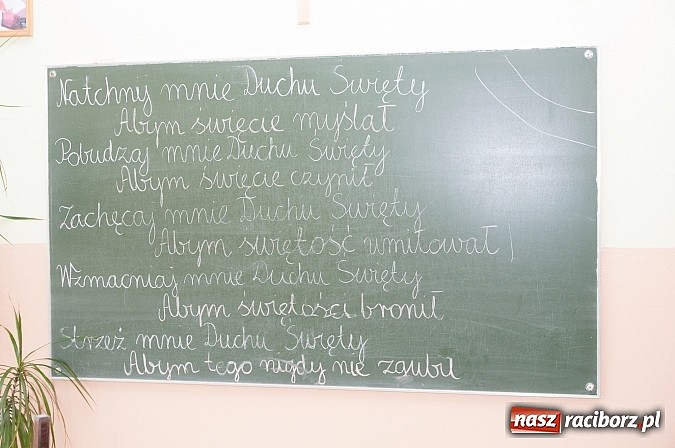 Natchnij mnie Duchu Święty
Abym święcie myślał
Pobudzaj mnie Duchu Święty
Abym święcie czynił
Zachęcaj mnie Duchu Święty
Abym świętość umiłował
Wzmacniaj mnie Duchu Święty
Abym świętości bronił
Strzeż mnie Duchu Święty
Abym tego nigdy nie zgubił
nasz raciborz.pl